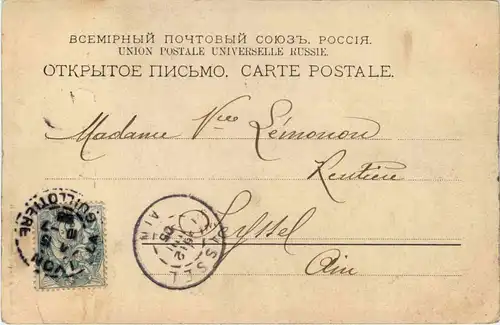 ВСЕМІРНЫЙ ПОЧТОВЫЙ СОЮЗЪ. РОССІЯ.
UNION POSTALE UNIVERSELLE RUSSIE.
ОТКРЫТОЕ ПИСЬМО. CARTE POSTALE.
Madame Vve Lémonon
Rentière
Seyssel
Ain
LYON
LA GUILLOTIERE
SEYSSEL
AIN
05